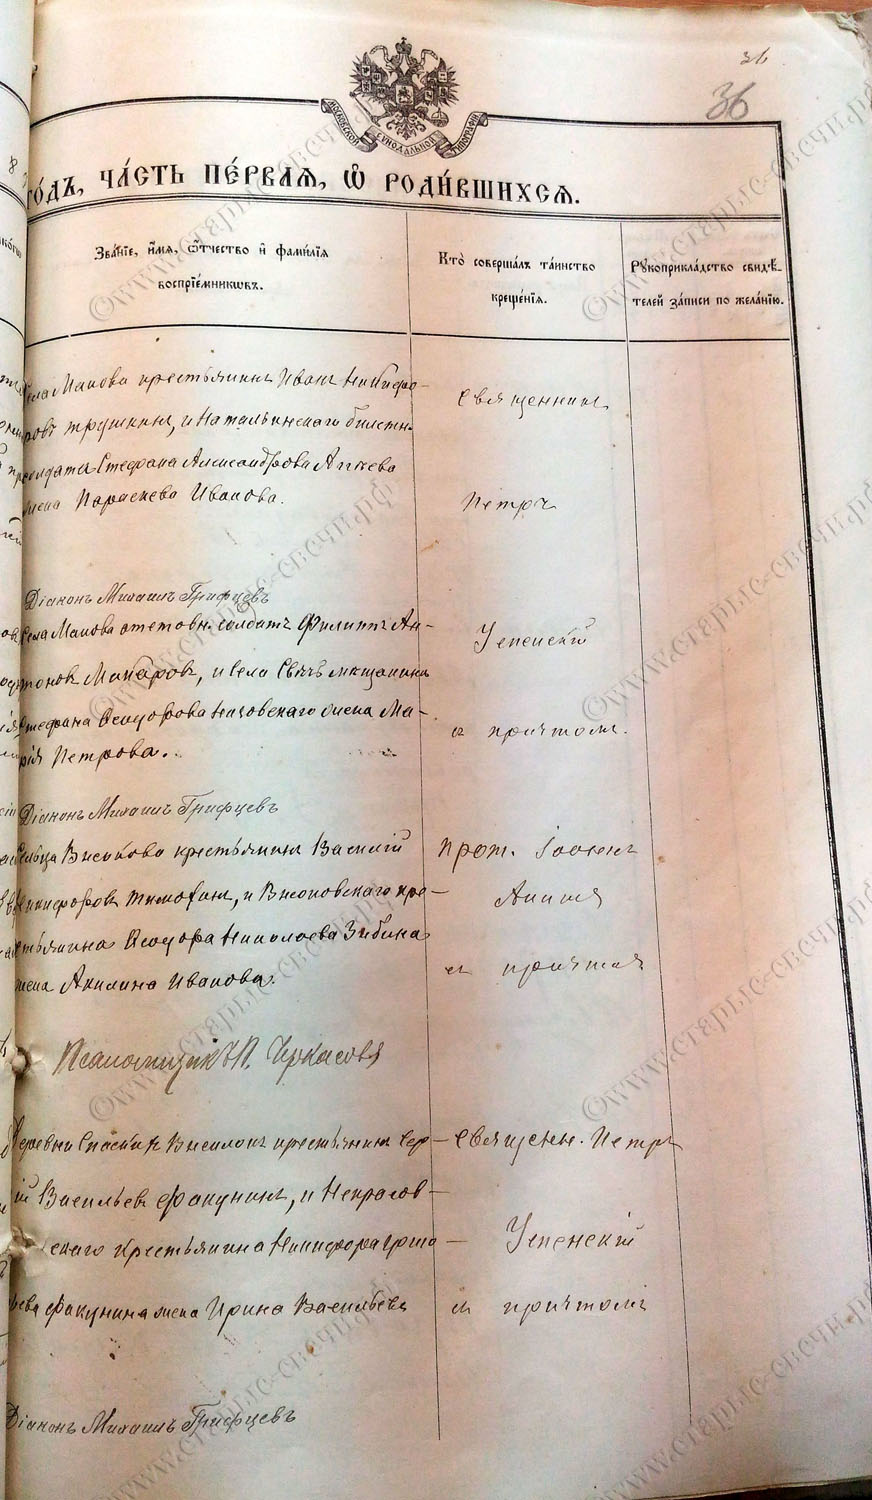 36
36
МОСКОВСКОЙ СѴНОДАЛЬНОЙ ТИПОГРАФІИ
го́дъ, ча́сть пе́рваѧ, ѡ҆ роди́вшихсѧ.
Зва́нїе, и҆́мѧ, ѻ҆́тчество и҆ фами́лїѧ
воспрїе́мникѡвъ.
Кто̀ соверша́лъ та́инство
креще́нїѧ.
Рꙋкоприкла́дство свидѣ́-
телей за́писи по жела́нїю.
села Макова крестьянинъ Иванъ Никифо-
ровъ Трушкинъ, и Натальинскаго билетн.
солдата Стефана Александрова
жена Параскева Иванова.
Священникъ
Петръ
Діаконъ Михаилъ Грифцевъ
Села Макова отставн. солдатъ Филиппъ Ан-
тоновъ Макаровъ, и села мѣщанина
Стефана Ѳеодорова жена Ма-
рія Петрова.
Успенскій
съ причтомъ.
Діаконъ Михаилъ Грифцевъ
Сельца крестьянинъ Василій
Никифоровъ Тимохинъ, и кре-
стьянина Ѳеодора Николаева Зибина
жена Акилина Иванова.
прот. Іоаннъ
съ причтомъ
Псаломщикъ П. Черкасовъ
Деревни крестьянинъ Сер-
гій Васильевъ Факунинъ, и Некрасов-
скаго крестьянина Никифора Григо-
рьева Факунина жена Ирина Васильева
Священн. Петръ
Успенскій
съ причтомъ
Діаконъ Михаилъ Грифцевъ
©www.старые-свечи.рф